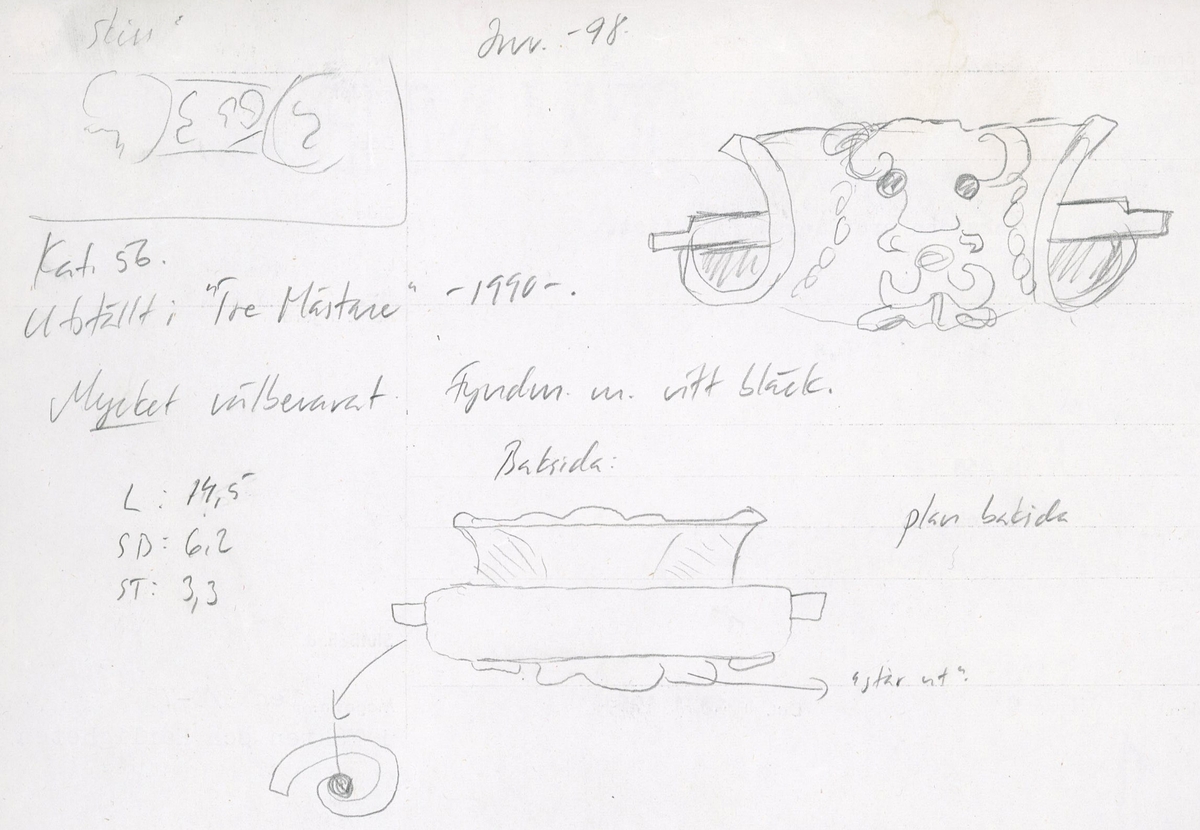 Inv. -98.
Kat. 56.
Utställt i "Tre Mästare" -1990-.
Mycket välbevarat. Fyndnr. m. vitt bläck.
Baksida:
L: 14,5
SB: 6,2
ST: 3,3
plan baksida
"står ut".